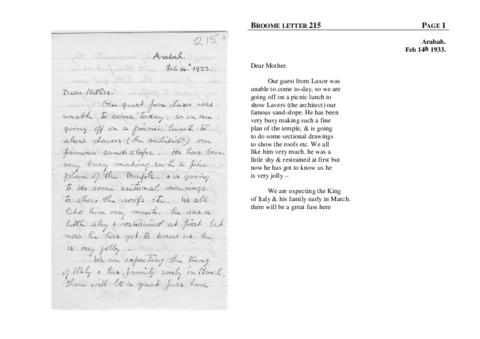 215
Arabah.
Feb 14th 1933.
Dear Mother.
Our guest from Luxor was
unable to come today, so we are
going off on a picnic lunch to
show Lavers (the architect) our
famous sand-slope. He has been
very busy making such a fine
plan of the temple, & is going
to do some sectional drawings
to show the roofs etc. We all
like him very much. he was a
little shy & restrained at first but
now he has got to know us he
is very jolly –
We are expecting the King
of Italy & his family early in March.
there will be a great fuss here
BROOME LETTER 215 PAGE 1
Arabah.
Feb 14th 1933.
Dear Mother.
Our guest from Luxor was
unable to come to-day, so we are
going off on a picnic lunch to
show Lavers (the architect) our
famous sand-slope. He has been
very busy making such a fine
plan of the temple, & is going
to do some sectional drawings
to show the roofs etc. We all
like him very much. he was a
little shy & restrained at first but
now he has got to know us he
is very jolly –
We are expecting the King
of Italy & his family early in March.
there will be a great fuss here